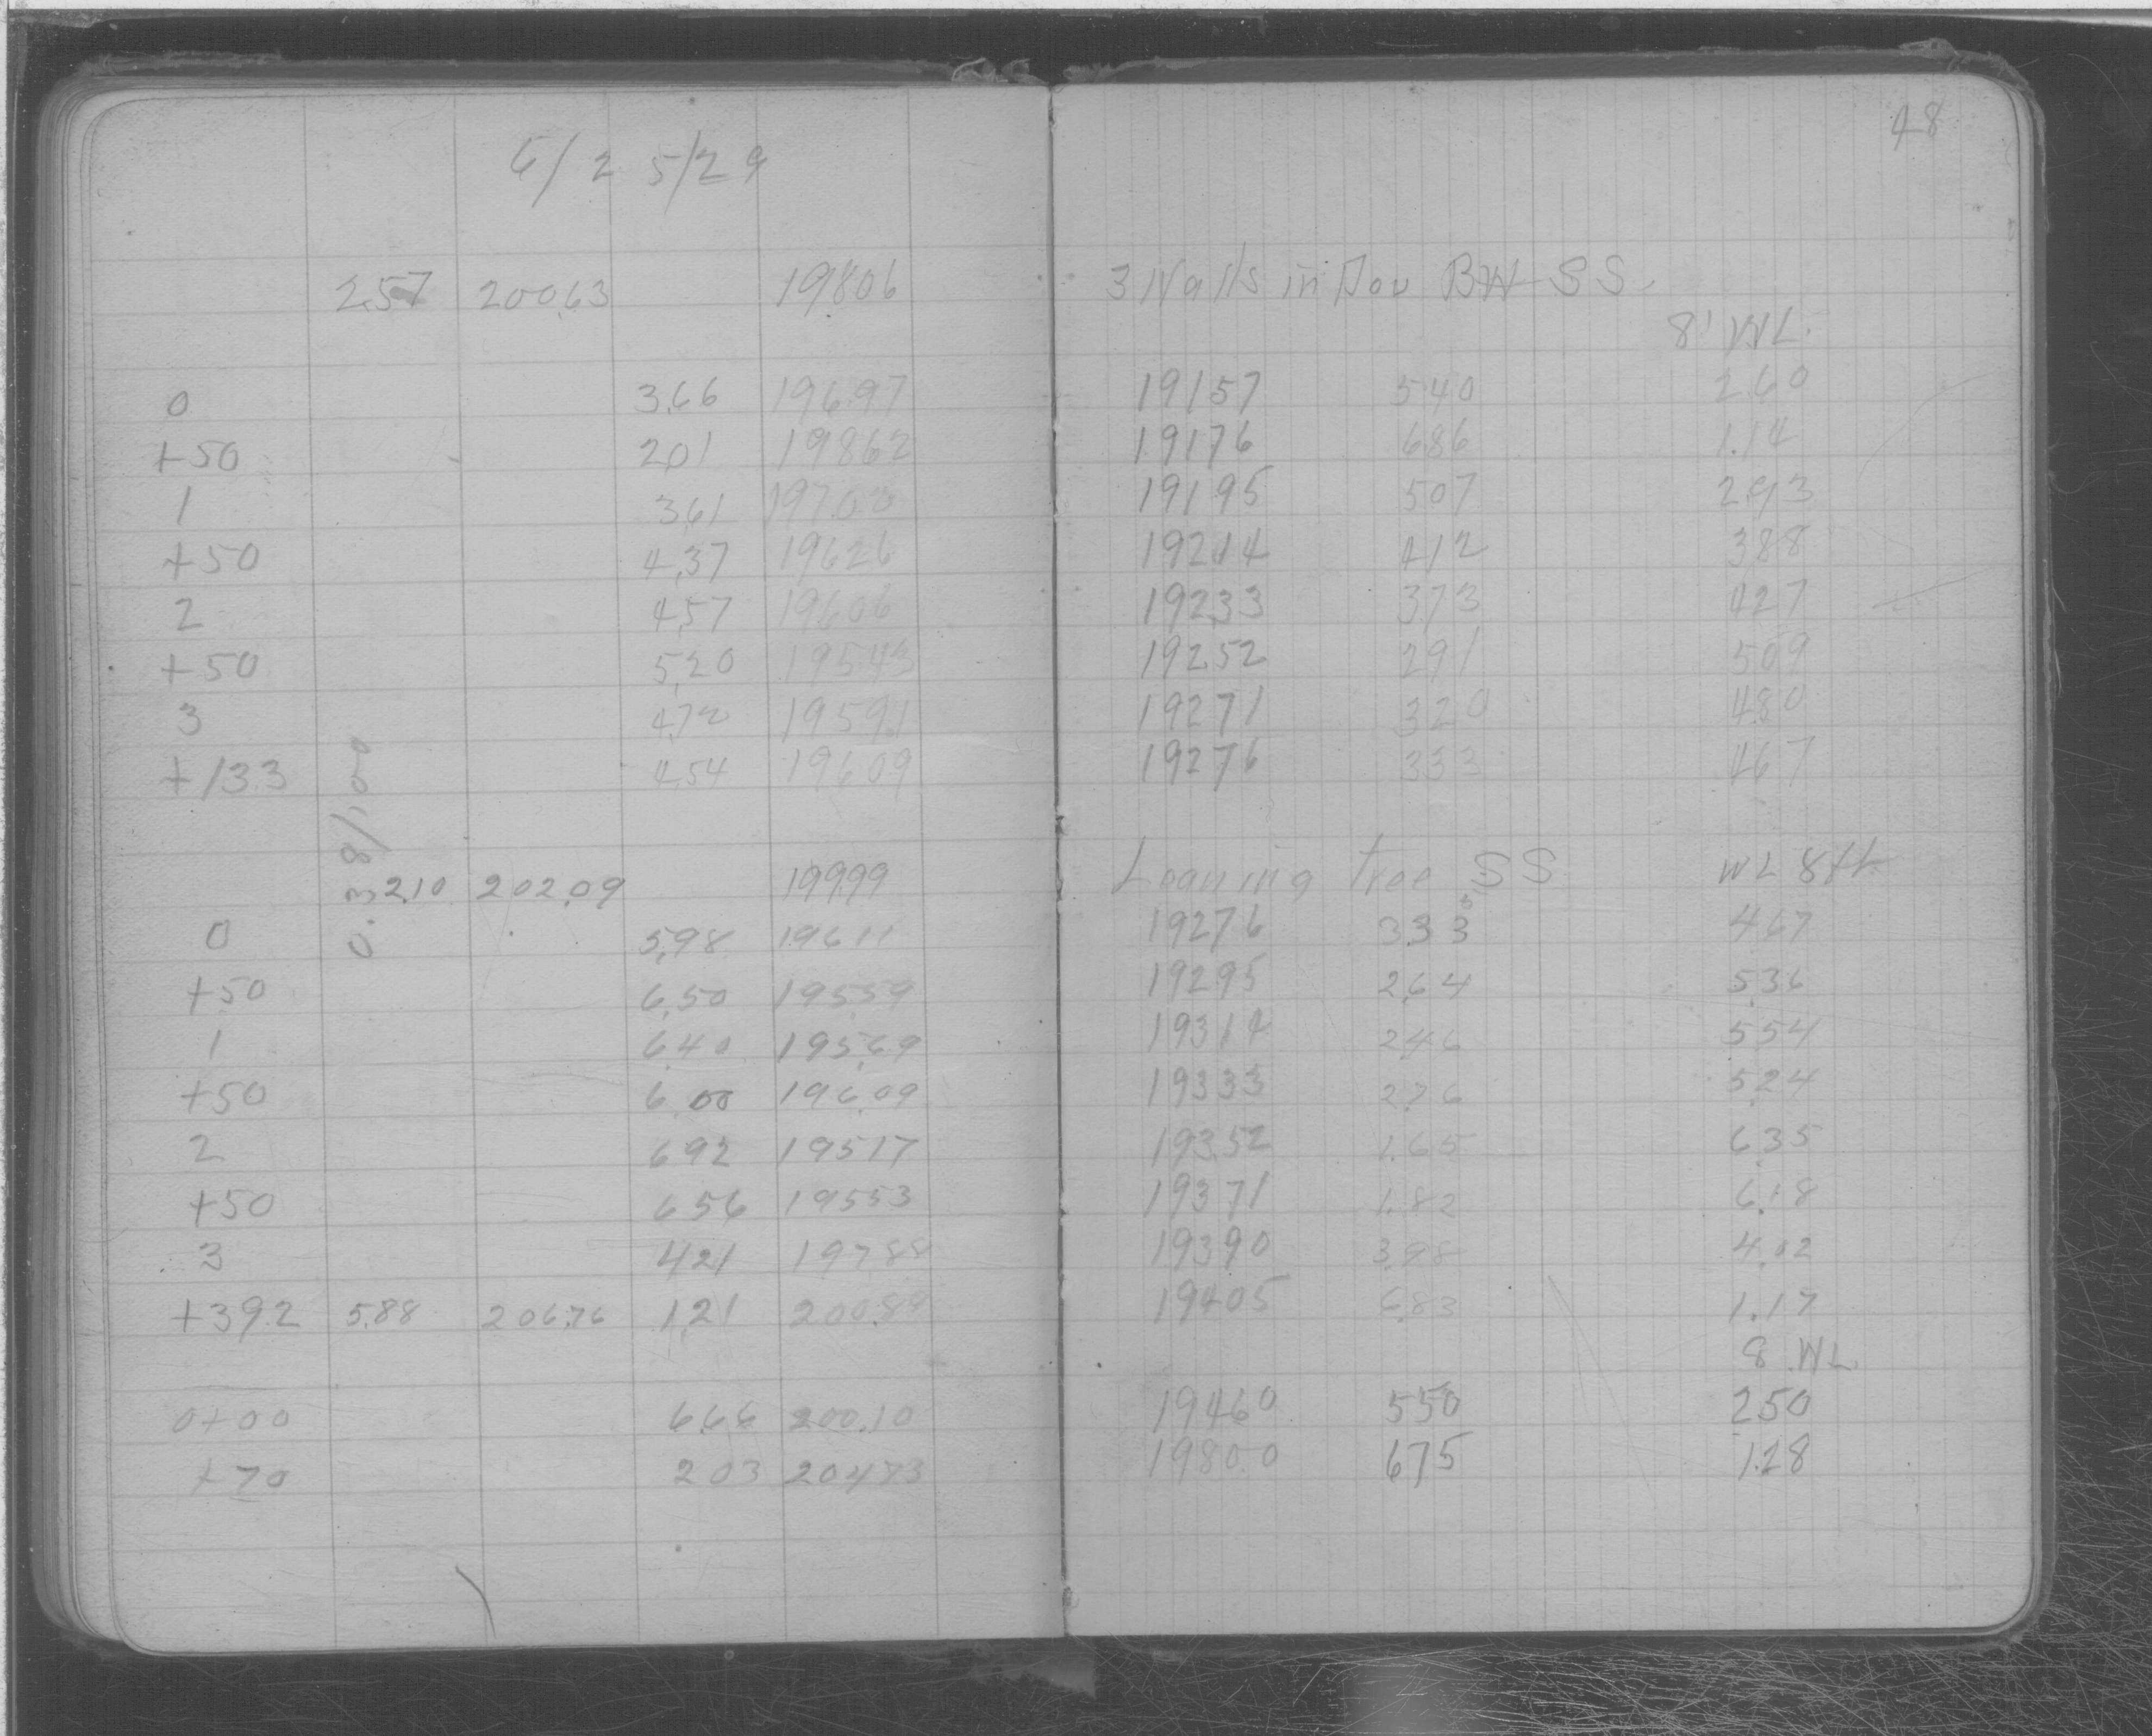 48
6/25/29
2.57 200.63 198.06 3 Nails in Dou BW SS.
8' WL.
0 3.66 196.97 191.57 5.40 2.60
+50 2.01 198.62 191.76 6.86 1.14
1 3.61 197.02 191.95 5.07 2.93
+50 4.37 196.26 192.14 4.12 3.88
2 4.57 196.06 192.33 3.73 4.27
+50 5.20 195.43 192.52 2.91 5.09
3 4.72 195.91 192.71 3.20 4.80
+13.3 4.54 196.09 192.76 3.33 4.67
0.38/100
2.10 202.09 199.99 Leaning tree SS WL 8ft
0 5.98 196.11 192.76 3.33 4.67
+50 6.50 195.59 192.95 2.64 5.36
1 6.40 195.69 193.14 2.46 5.54
+50 6.00 196.09 193.33 2.76 5.24
2 6.92 195.17 193.52 1.65 6.35
+50 6.56 195.53 193.71 1.82 6.18
3 4.21 197.88 193.90 3.98 4.02
+39.2 5.88 206.76 1.21 200.88 194.05 6.83 1.17
8 WL
0+00 6.66 200.10 194.60 5.50 2.50
+70 2.03 204.73 198.00 6.75 1.28